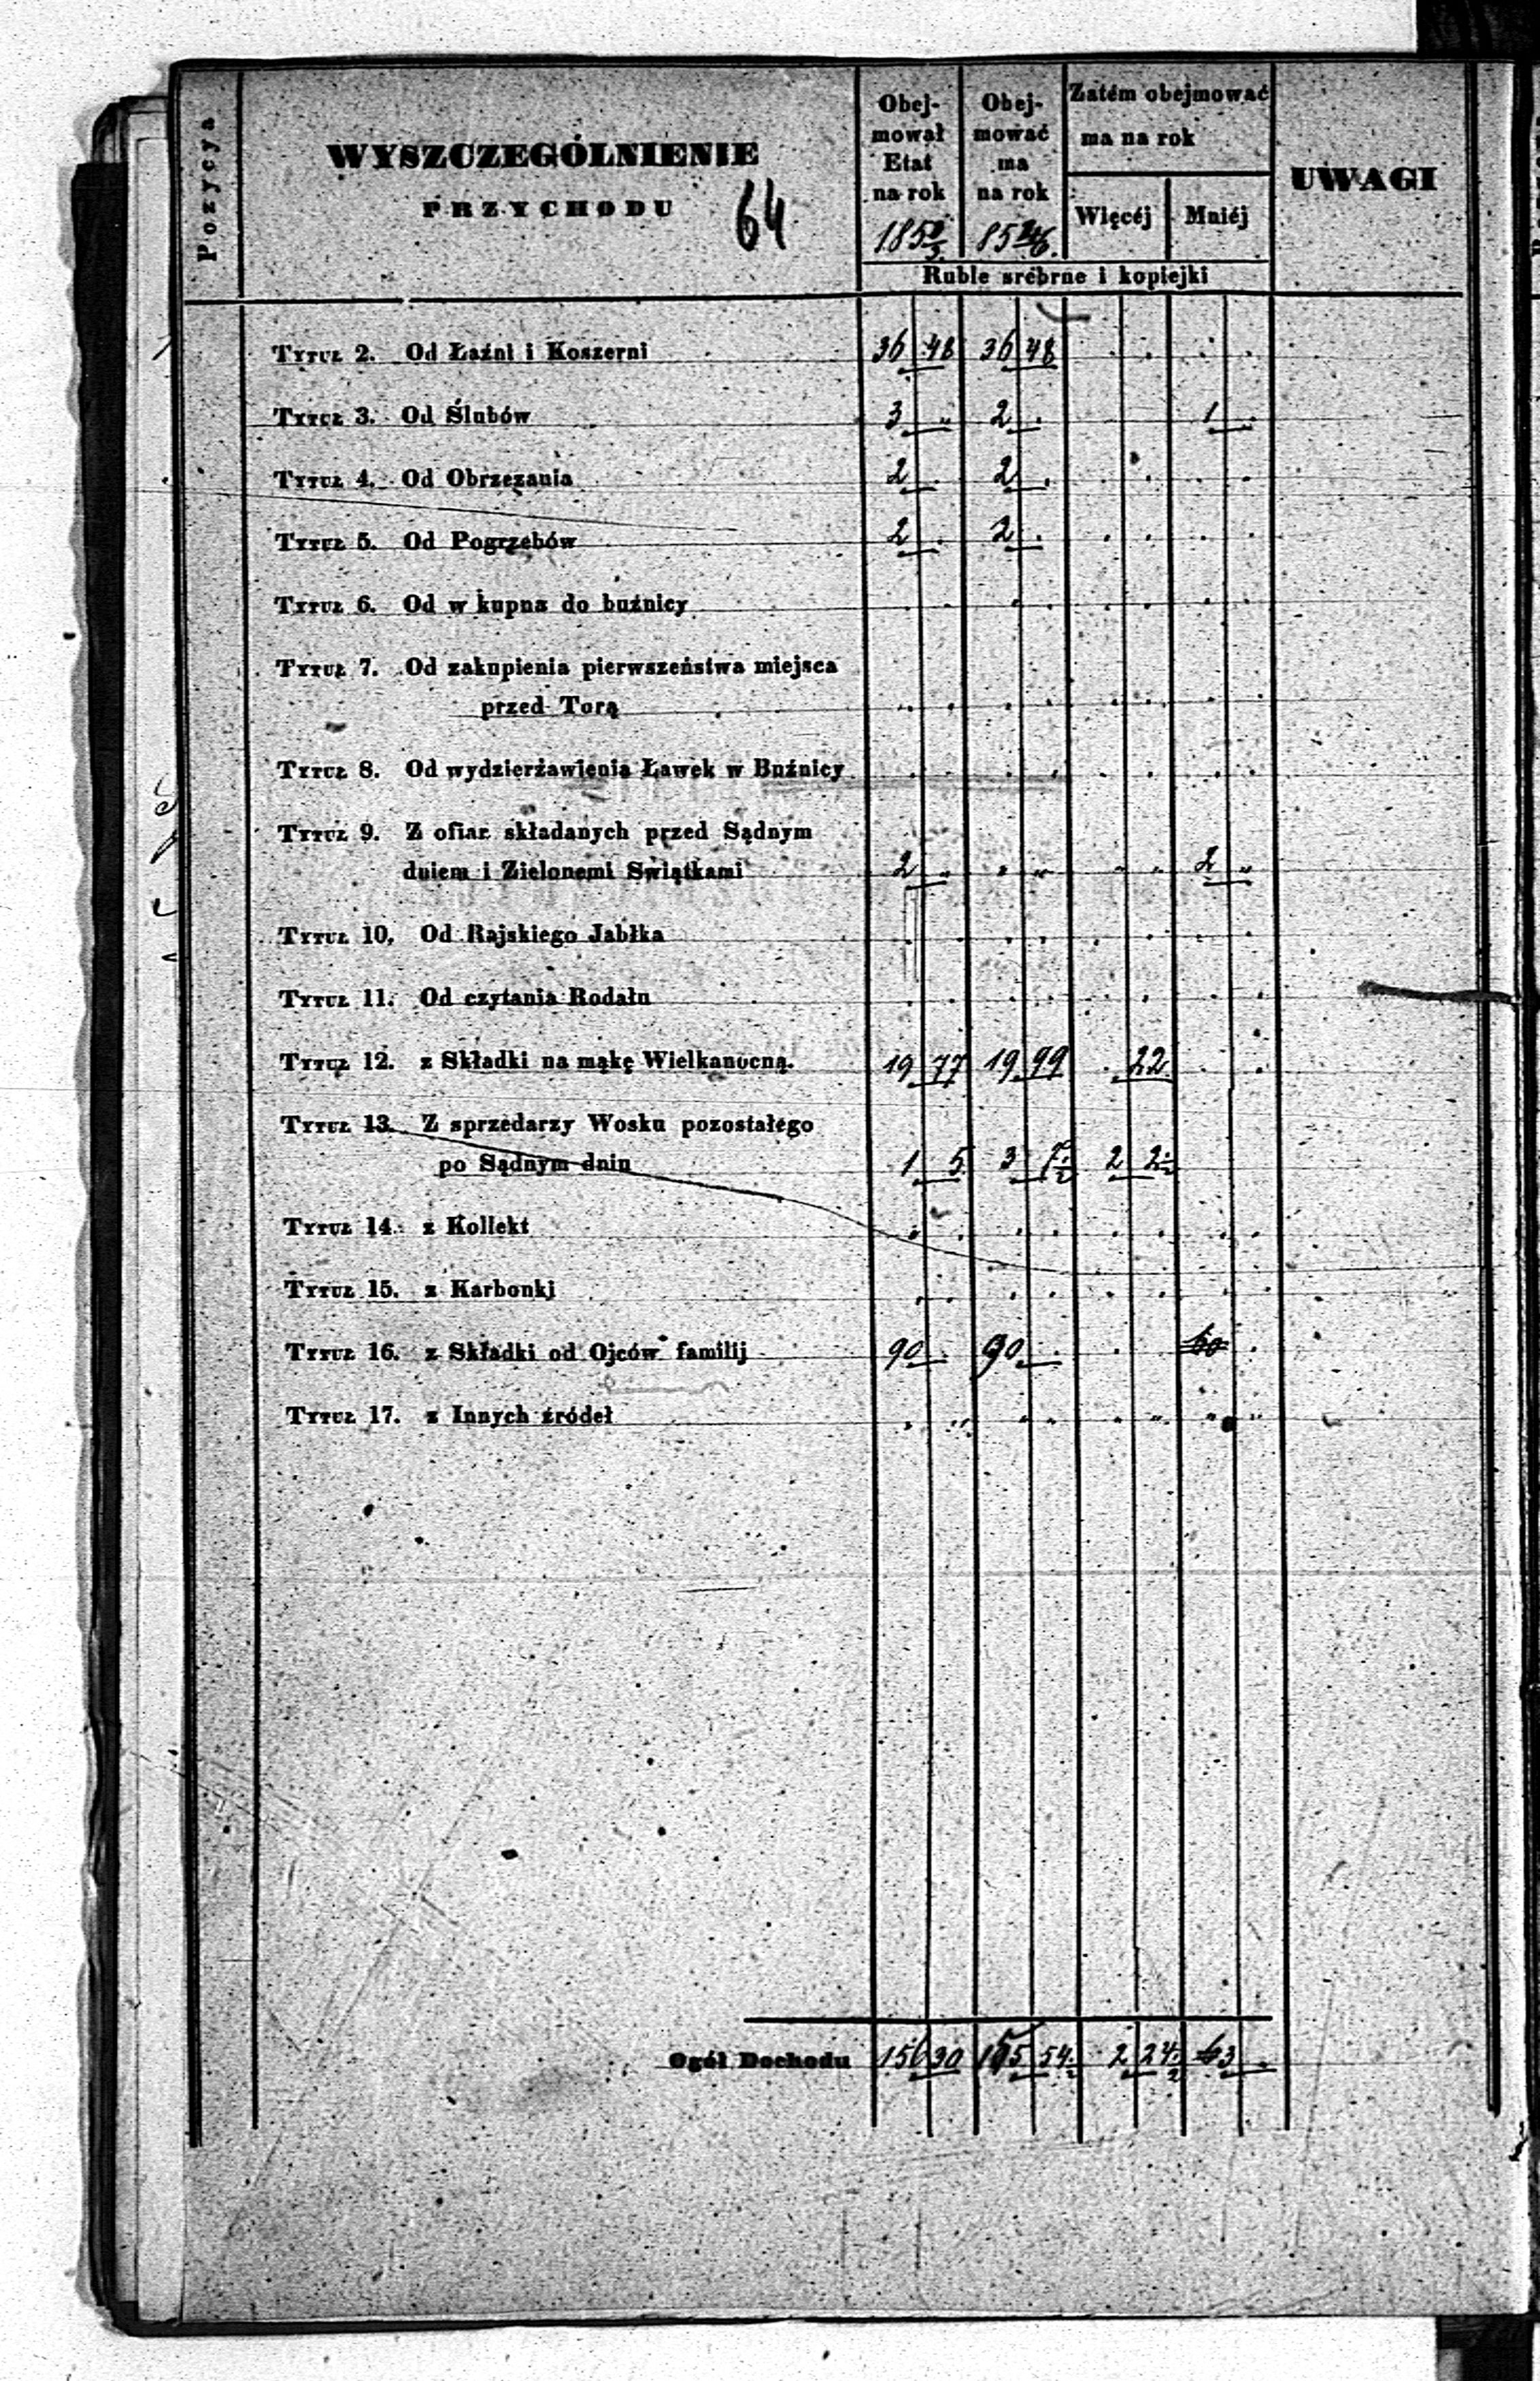 Pozycya
WYSZCZEGÓLNIENIE
PRZYCHODU
64
Obej-
mował
Etat
na rok
Obej-
mować
ma
na rok
Zatém obejmować
ma na rok
Więcéj Mniéj
UWAGI
Ruble srébrne i kopiejki
Tytuł 2. Od Łaźni i Koszerni 36 48 36 48
Tytuł 3. Od Ślubów 3 „ 2 . 1 .
Tytuł 4. Od Obrzezania 2 . 2 .
Tytuł 5. Od Pogrzebów 2 . 2 .
Tytuł 6. Od w kupna do buźnicy
Tytuł 7. Od zakupienia pierwszeństwa miejsca
przed Torą
Tytuł 8. Od wydzierżawienia Ławek w Buźnicy
Tytuł 9. Z ofiar składanych przed Sądnym
dniem i Zielonemi Swiątkami 2 „ „ „ „ „ 2 „
Tytuł 10, Od Rajskiego Jabłka
Tytuł 11. Od czytania Rodału
Tytuł 12. z Składki na mąkę Wielkanocną. 19 77 19 99 . 22
Tytuł 13. Z sprzedarzy Wosku pozostałego
po Sądnym dniu 1 5 3 7½ 2 2½
Tytuł 14. z Kollekt
Tytuł 15. z Karbonki
Tytuł 16. z Składki od Ojców familij 90 . 90 . 60 .
Tytuł 17. z Innych źródeł
Ogół Dochodu 156 30 155 54½ 2 24½ 3 .